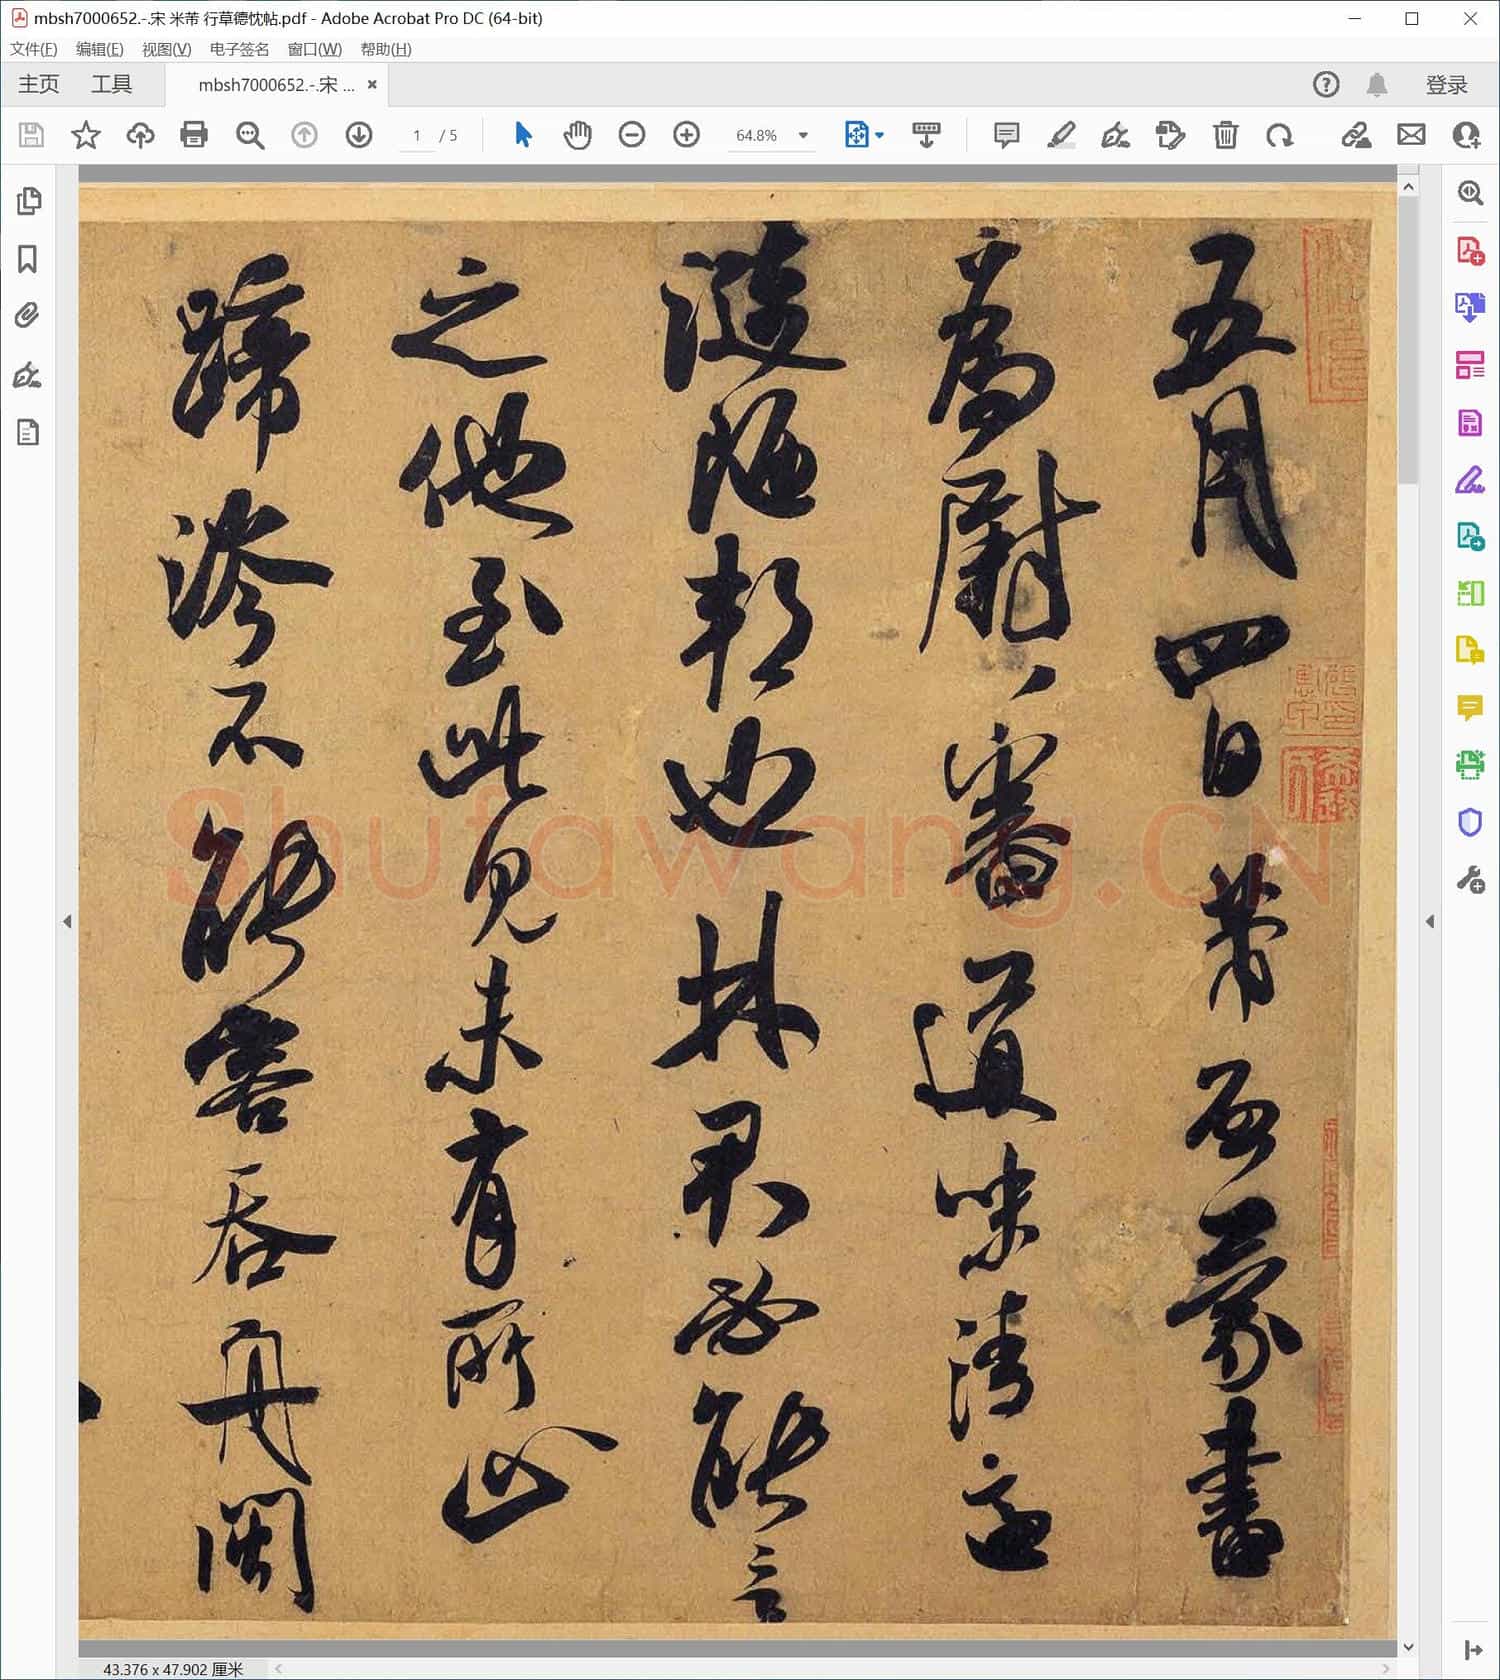 mbsh7000652.-.宋 米芾 行草德忱帖.pdf - Adobe Acrobat Pro DC (64-bit)
文件(F) 编辑(E) 视图(V) 电子签名 窗口(W) 帮助(H)
主页 工具 mbsh7000652.-.宋 ... 登录
1 / 5 64.8%
五月四日芾啟蒙書
為尉審道味清適
漣陋邦也林君必能言
之他至此見未有所止
蹄涔不能容吞舟閩
Shufawang.CN
43.376 x 47.902 厘米